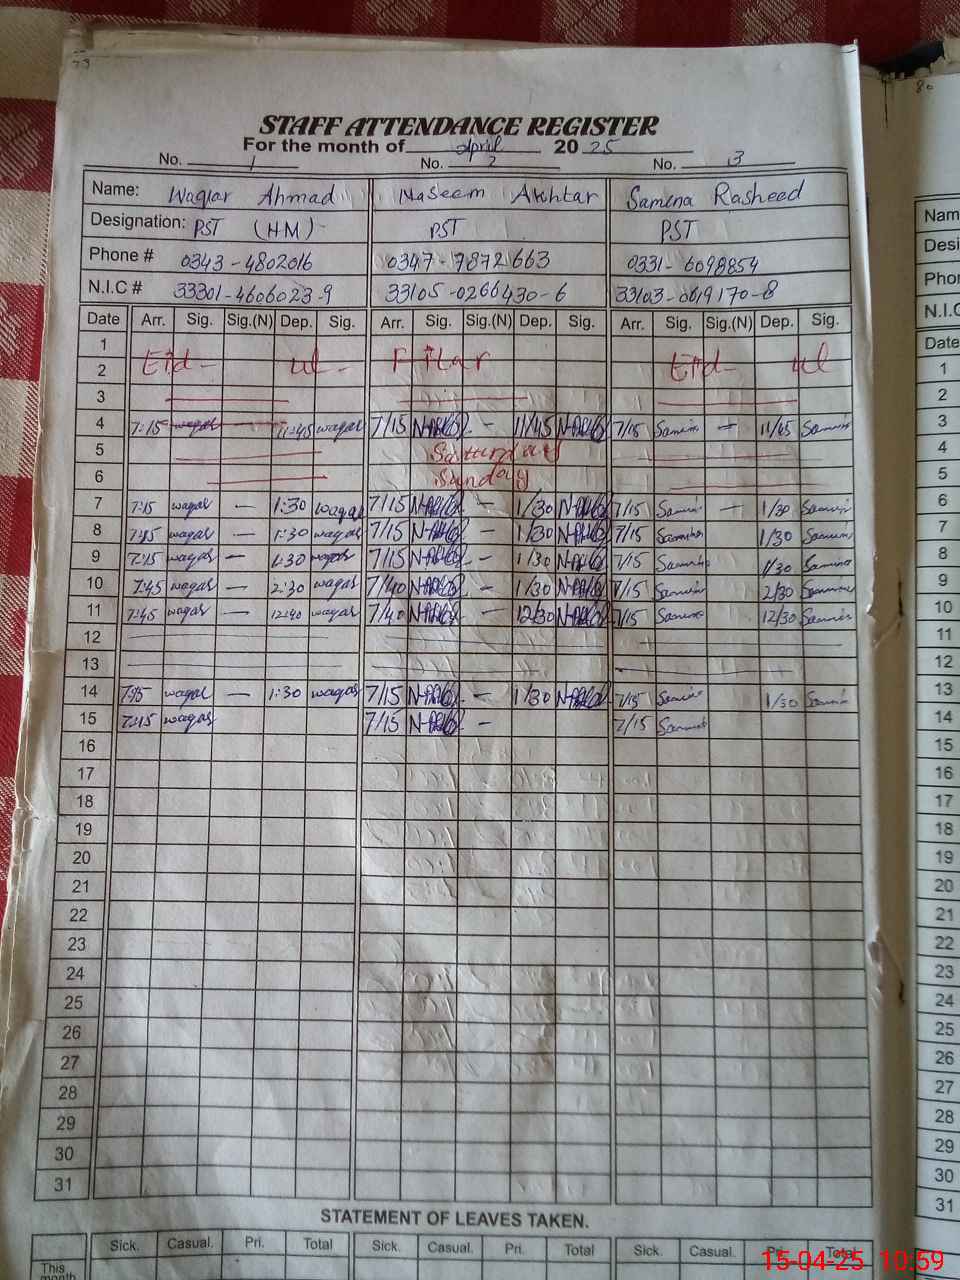 STAFF ATTENDANCE REGISTER
For the month of April 20 25
No. 1 No. 2 No. 3
Name: Waqar Ahmad Naseem Akhtar Samina Rasheed
Designation: PST (HM) PST PST
Phone # 0343-4802016 0347-7872663 0331-6098854
N.I.C # 33301-4606023-9 33105-0266430-6 33103-0619170-8
Date Arr. Sig. Sig.(N) Dep. Sig. Arr. Sig. Sig.(N) Dep. Sig. Arr. Sig. Sig.(N) Dep. Sig.
1
2 Eid- ul- Fitar Eid- ul
3
4 7:15 waqar — 11:45 waqar 7/15 — 11/45 7/15 Samina — 11/45 Samina
5 Saturday
6 Sunday
7 7:15 waqar — 1:30 waqar 7/15 — 1/30 7/15 Samina — 1/30 Samina
8 7:15 waqar — 1:30 waqar 7/15 — 1/30 7/15 Samina 1/30 Samina
9 7:15 waqar — 1:30 waqar 7/15 — 1/30 7/15 Samina 1/30 Samina
10 7:45 waqar — 2:30 waqar 7/40 — 1/30 7/15 Samina 2/30 Samina
11 7:45 waqar — 12:40 waqar 7/40 — 12/30 7/15 Samina 12/30 Samina
12
13
14 7:15 waqar — 1:30 waqar 7/15 — 1/30 7/15 Samina 1/30 Samina
15 7:15 waqar 7/15 — 7/15 Samina
16
17
18
19
20
21
22
23
24
25
26
27
28
29
30
31
STATEMENT OF LEAVES TAKEN.
Sick. Casual. Pri. Total Sick. Casual. Pri. Total Sick. Casual. Pri. Total
This
month
80
Name
Desi
Phon
N.I.C
Date
1
2
3
4
5
6
7
8
9
10
11
12
13
14
15
16
17
18
19
20
21
22
23
24
25
26
27
28
29
30
31
15-04-25 10:59